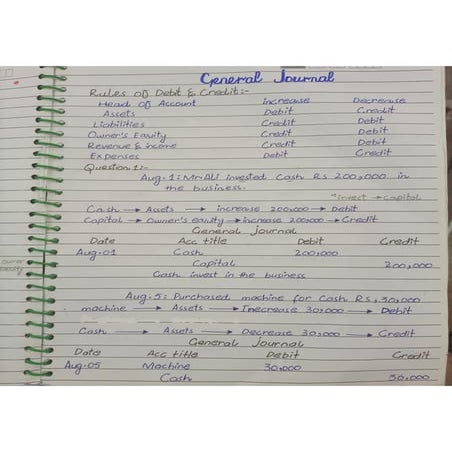 General Journal
Rules of Debit & Credit:-
Head of Account increase Decrease
Assets Debit Credit
Liabilities Credit Debit
Owner's Equity Credit Debit
Revenue & income Credit Debit
Expenses Debit Credit
Question 1:-
Aug. 1: Mr Ali invested Cash Rs 200,000 in
the business.
*invest → capital
Cash → Assets → increase 200,000 → Debit
Capital → Owner's equity → increase 200,000 → Credit
General Journal
Date Acc title Debit Credit
Aug.01 Cash 200,000
Capital 200,000
Cash invest in the business
Aug. 5: Purchased machine for Cash Rs, 30,000
machine → Assets → Inecrease 30,000 → Debit
Cash → Assets → Decrease 30,000 → Credit
General Journal
Date Acc title Debit Credit
Aug.05 Machine 30,000
Cash 30,000
owner
equity